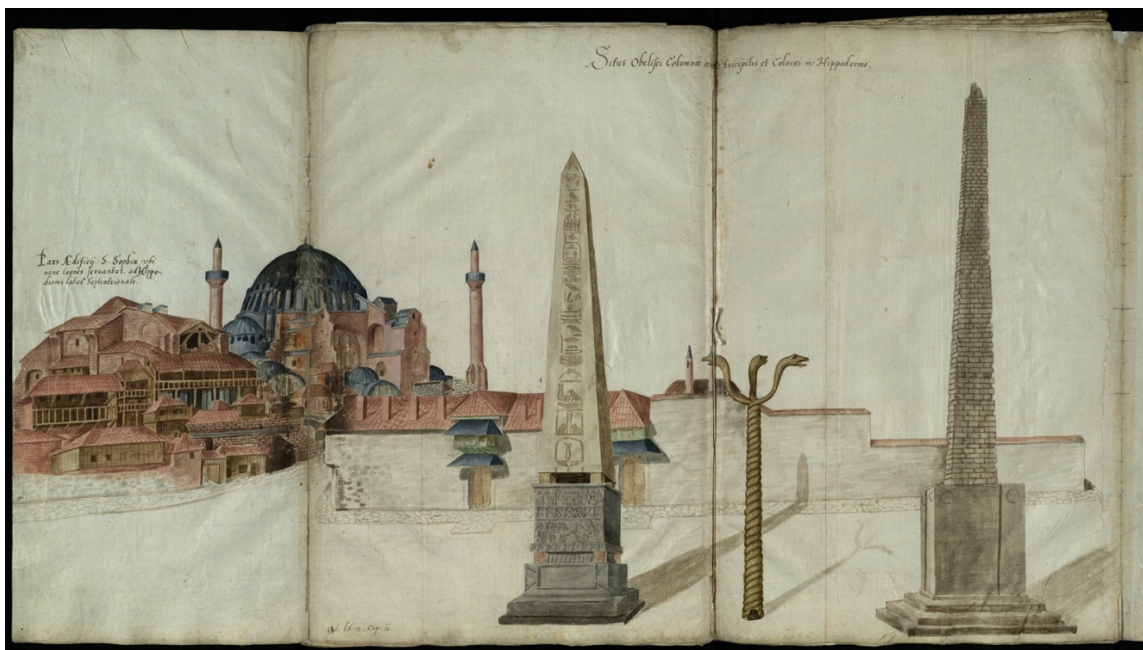 Situs Obelisci Columnæ et Colossi in Hippodromo.
Pars Ædificij S. Sophiæ ubi
nunc leones servantur ad Hippo-
dromi latus Septentrionale.
Cap. ii.